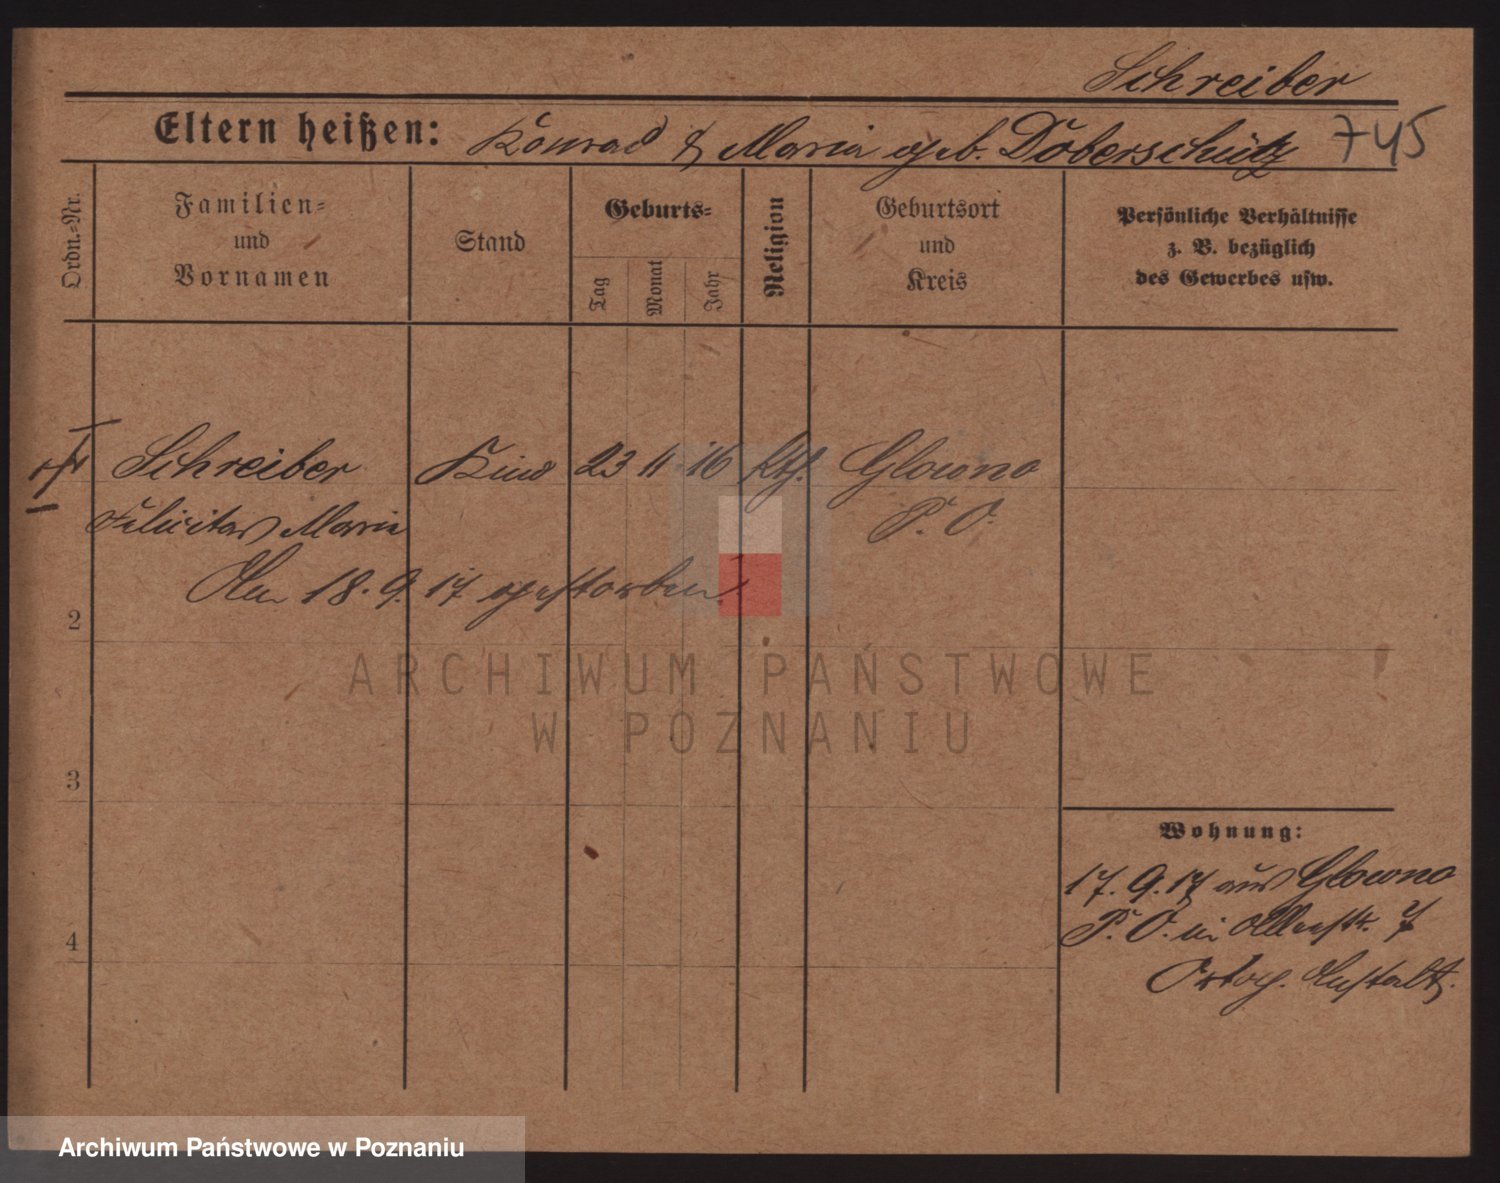 Schreiber
Eltern heißen: Konrad & Maria geb. Doberschütz 745
Ordn.-Nr.
Familien-
und
Vornamen
Stand
Geburts-
Tag
Monat
Jahr
Religion
Geburtsort
und
Kreis
Persönliche Verhältnisse
z. B. bezüglich
des Gewerbes usw.
Schreiber Kind 23 11 16 kth. Glowno
Felicitas Maria P. O.
Den 18. 9. 17 gestorben.
2
3
4
Wohnung:
17. 9. 17 aus Glowno
P. O. in
Ortop. Anstalt.
ARCHIWUM PAŃSTWOWE
W POZNANIU
Archiwum Państwowe w Poznaniu